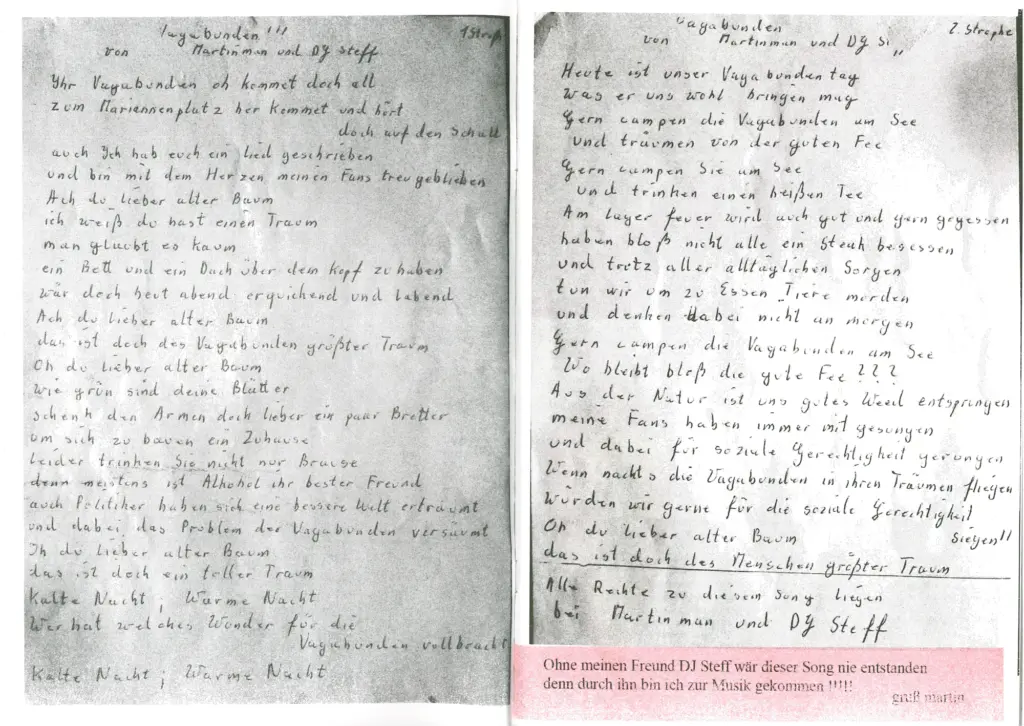 Vagabunden !!!
1 Stroph
von Martinman und DJ Steff
Ihr Vagabunden oh kommet doch all
zum Mariannenplatz her kommet und hört
doch auf den Schall
auch Ich hab euch ein Lied geschrieben
und bin mit dem Herzen meinen Fans treu geblieben
Ach du lieber alter Baum
ich weiß du hast einen Traum
man glaubt es kaum
ein Bett und ein Dach über dem Kopf zu haben
wär doch heut abend erquichend und labend
Ach du lieber alter Baum
das ist doch des Vagabunden größter Traum
Oh du lieber alter Baum
wie grün sind deine Blätter
schenk den Armen doch lieber ein paar Bretter
um sich zu bauen ein Zuhause
Leider trinken Sie nicht nur Brause
denn meistens ist Alkohol ihr bester Freund
auch Politiker haben sich eine bessere Welt erträumt
und dabei das Problem der Vagabunden versäumt
Oh du lieber alter Baum
das ist doch ein toller Traum
Kalte Nacht ; Warme Nacht
Wer hat welches Wunder für die
Vagabunden vollbracht
Kalte Nacht ; Warme Nacht
Vagabunden
2. Strophe
von Martinman und DJ St
Heute ist unser Vagabundentag
Was er uns wohl bringen mag
Gern campen die Vagabunden am See
und träumen von der guten Fee
Gern campen Sie am See
und trinken einen heißen Tee
Am Lager feuer wird auch gut und gern gegessen
haben bloß nicht alle ein Steak besessen
und trotz aller alltäglichen Sorgen
tun wir um zu Essen Tiere morden
und denken dabei nicht an morgen
Gern campen die Vagabunden am See
Wo bleibt bloß die gute Fee ???
Aus der Natur ist uns gutes Weed entsprungen
meine Fans haben immer mit gesungen
und dabei für soziale Gerechtigkeit gerungen
Wenn nachts die Vagabunden in ihren Träumen fliegen
würden wir gerne für die soziale Gerechtigkeit
siegen!!
Oh du lieber alter Baum
das ist doch des Menschen größter Traum
Alle Rechte zu diesem Song liegen
bei Martinman und DJ Steff
Ohne meinen Freund DJ Steff wär dieser Song nie entstanden
denn durch ihn bin ich zur Musik gekommen !!!!!
gruß martin